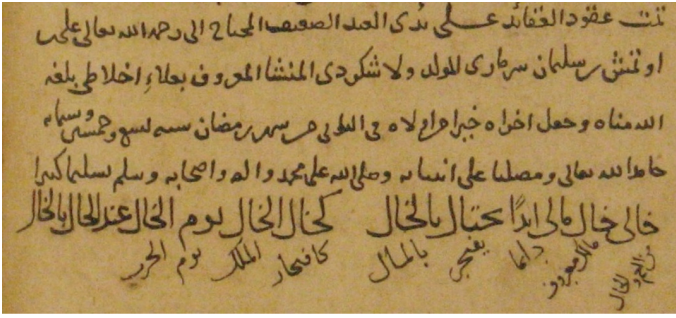 تمت عقود العقائد على يدى العبد الضعيف المحتاج الى رحمة الله تعالى على بن
سلمان المولد ولاشكردى المنشا المعروف بعلاء اخلاطى بلغه
الله مناه وجعل اخراه خيرا من اولاه فى من شهر رمضان سنه تسع وخمسين وستمايه
حامدا لله تعالى ومصليا على انبيائه وصلى الله على محمد واله واصحابه وسلم تسليما كثيرا
خالى خال مالى ابدًا يختال بالخال كخال الخال يوم الخال عند الخال بالخال
الخال معروف دائما يفتخر بالمال كافتخار الملك يوم الحرب